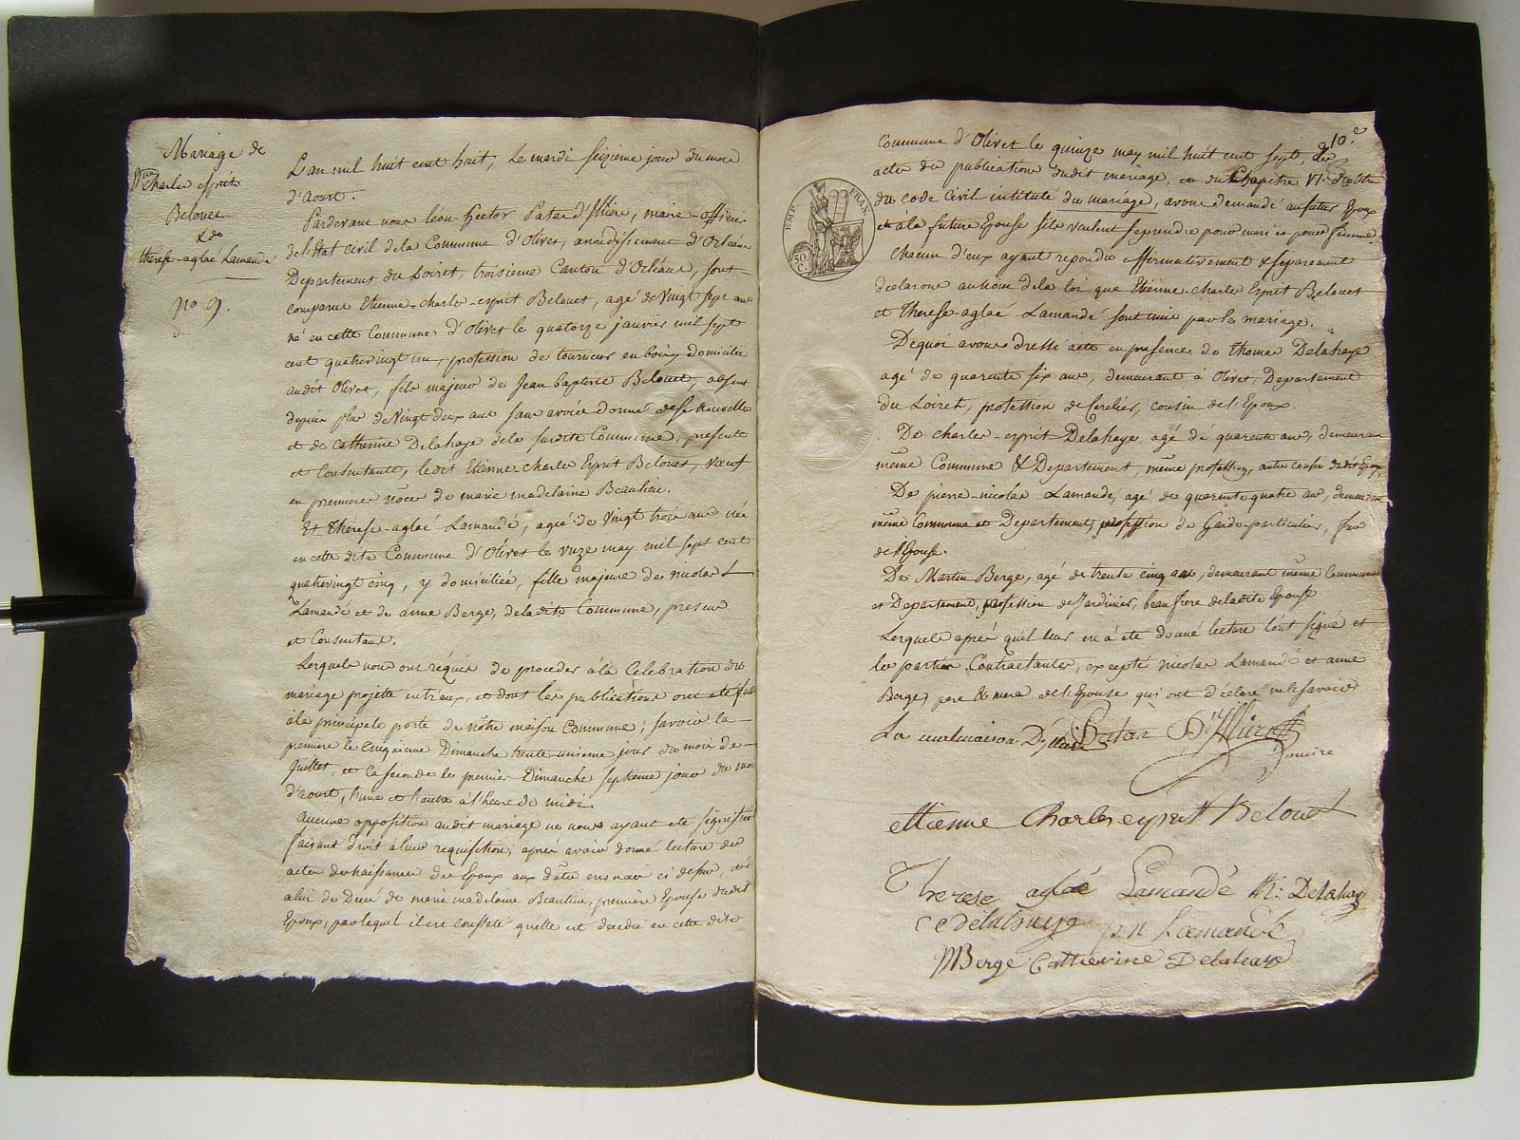 Mariage de
Charles esprit
Belouet
& de
therese-aglaé Lamandé
No. 9.
L'an mil huit cent huit, le mardi seizieme jour du mois
d'aoust.
Pardevant nous léon-hector Patas d'Illiers, maire-officier
de l'Etat civil de la Commune d'Olivet, arrondissement d'Orléans
Departement du Loiret, troisieme Canton d'Orléans, sont
comparus Etienne-charles-esprit Belouet, agé de Vingt sept ans
né en cette Commune d'Olivet le quatorze janvier mil sept
cent quatrevingt un, profession de tourneur en bois, domicilié
audit Olivet, fils majeur de Jean baptiste Belouet, absent
depuis plus de Vingt deux ans sans avoir donné de ses Nouvelles
et de Catherine Delahaye de la susdite Commune, presente
et Consentante, ledit Etienne charles Esprit Belouet, Veuf
en premiere nôces de marie madelaine Beaulieu.
Et therese-aglaé Lamandé, agée de Vingt trois ans née
en cette dite Commune d'Olivet le onze may mil sept cent
quatrevingt cinq, y domiciliée, fille majeure de nicolas
Lamandé et de anne Bergé, de la dite Commune, presens
et Consentans.
Lesquels nous ont requis de proceder à la Celebration du
mariage projetté entreux, et dont les publications ont été faites
à la principale porte de nôtre maison Commune; savoir la
premiere le Cinquieme Dimanche trente unieme jour du mois de
Juillet, et la seconde le premier Dimanche septieme jour du mois
d'aoust, l'une et l'autre à l'heure de midi.
aucune opposition audit mariage ne nous ayant été signifiée
faisant droit à leur requisition, après avoir donné lecture des
actes de naissances des Epoux aux dates enoncées ci dessus, de
celui de Decès de marie madelaine Beaulieu, premiere Epouse dudit
Epoux, par lequel il est constaté quelle est decedée en cette dite
10.e
Commune d'Olivet le quinze may mil huit cent sept, des
actes de publications dudit mariage, et du Chapitre VI du titre
du code Civil intitulé du mariage, avons demandé au futur Epoux
et à la future Epouse s'ils veulent se prendre pour mari et pour femme.
Chacun d'eux ayant repondu affirmativement & séparement
declarons au nom de la loi que Etienne-charles Esprit Belouet
et therese-aglaé Lamandé sont unis par le mariage.
De quoi avons dressé acte en presence de thomas Delahaye
agé de quarante six ans, demeurant à Olivet, Departement
du Loiret, profession de Cerclier, cousin de l'Epoux.
De charles-esprit Delahaye agé de quarante ans, demeurant
même Commune & Departement, même profession, autre cousin dudit Epoux.
De pierre-nicolas Lamandé, agé de quarente quatre ans, demeurant
même Commune et Departement, profession de Garde-particulier, frere
de l'Epouse.
De Martin Bergé, agé de trente cinq ans, demeurant même Commune
et Departement, profession de Jardinier, beau frere de ladite Epouse
Lesquels après qu'il leur en a été donné lecture l'ont signé et
les parties Contractantes, excepté nicolas Lamandé et anne
Bergé, pere & mere de l'Epouse qui ont déclaré ne le savoir
Patas D'Illiers
maire
EMP. FRAN.
50 C.
ettienne Charles esprit Belouet
Therese aglaé Lamandé th: Delahaye
ce delahaye pn Lamandé
MBergé Catherine Delahaye